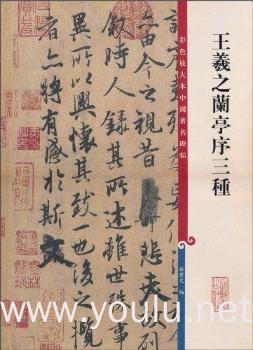 王羲之蘭亭序三種
彩色放大本中國著名碑帖
孫寶文 編
由今之視昔悲夫故列
敘時人錄其所述雖世殊事
異所以興懷其致一也後之攬
者亦將有感於斯文
www.youlu.net